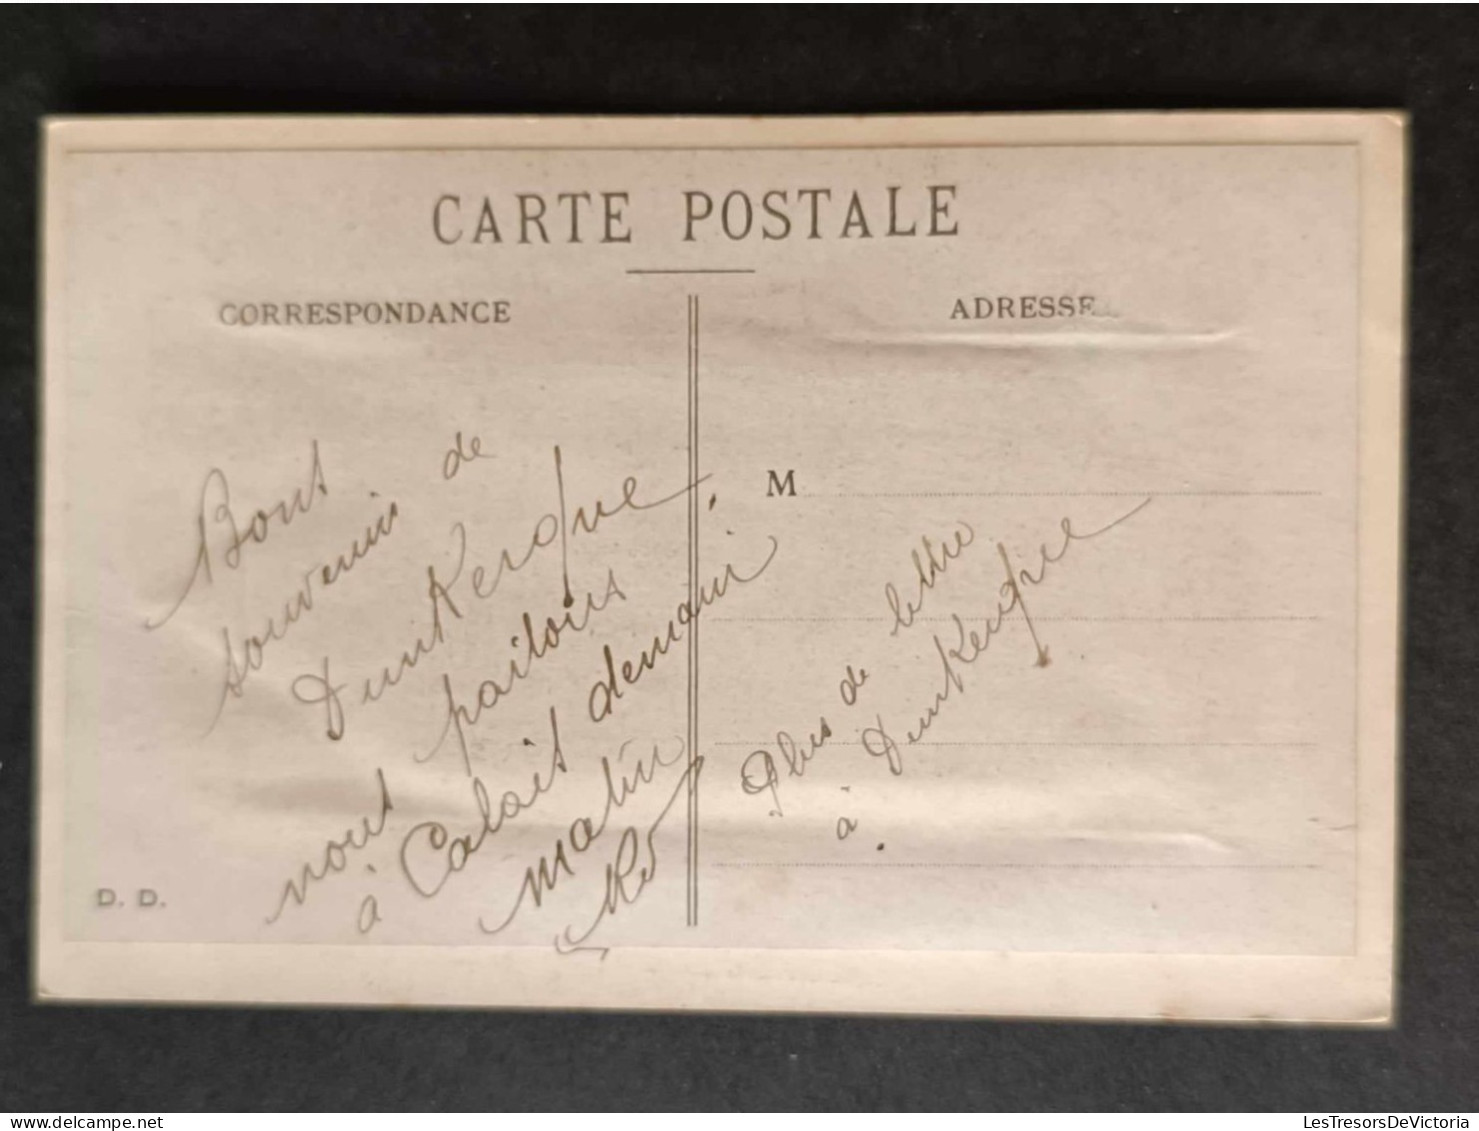 CARTE POSTALE
CORRESPONDANCE
ADRESSE
Bont
souvenir de
Dunkerque.
nout partons
à Calait demain
matin
M
Plus de lettre
à Dunkerque
D. D.
LesTresorsDeVictoria